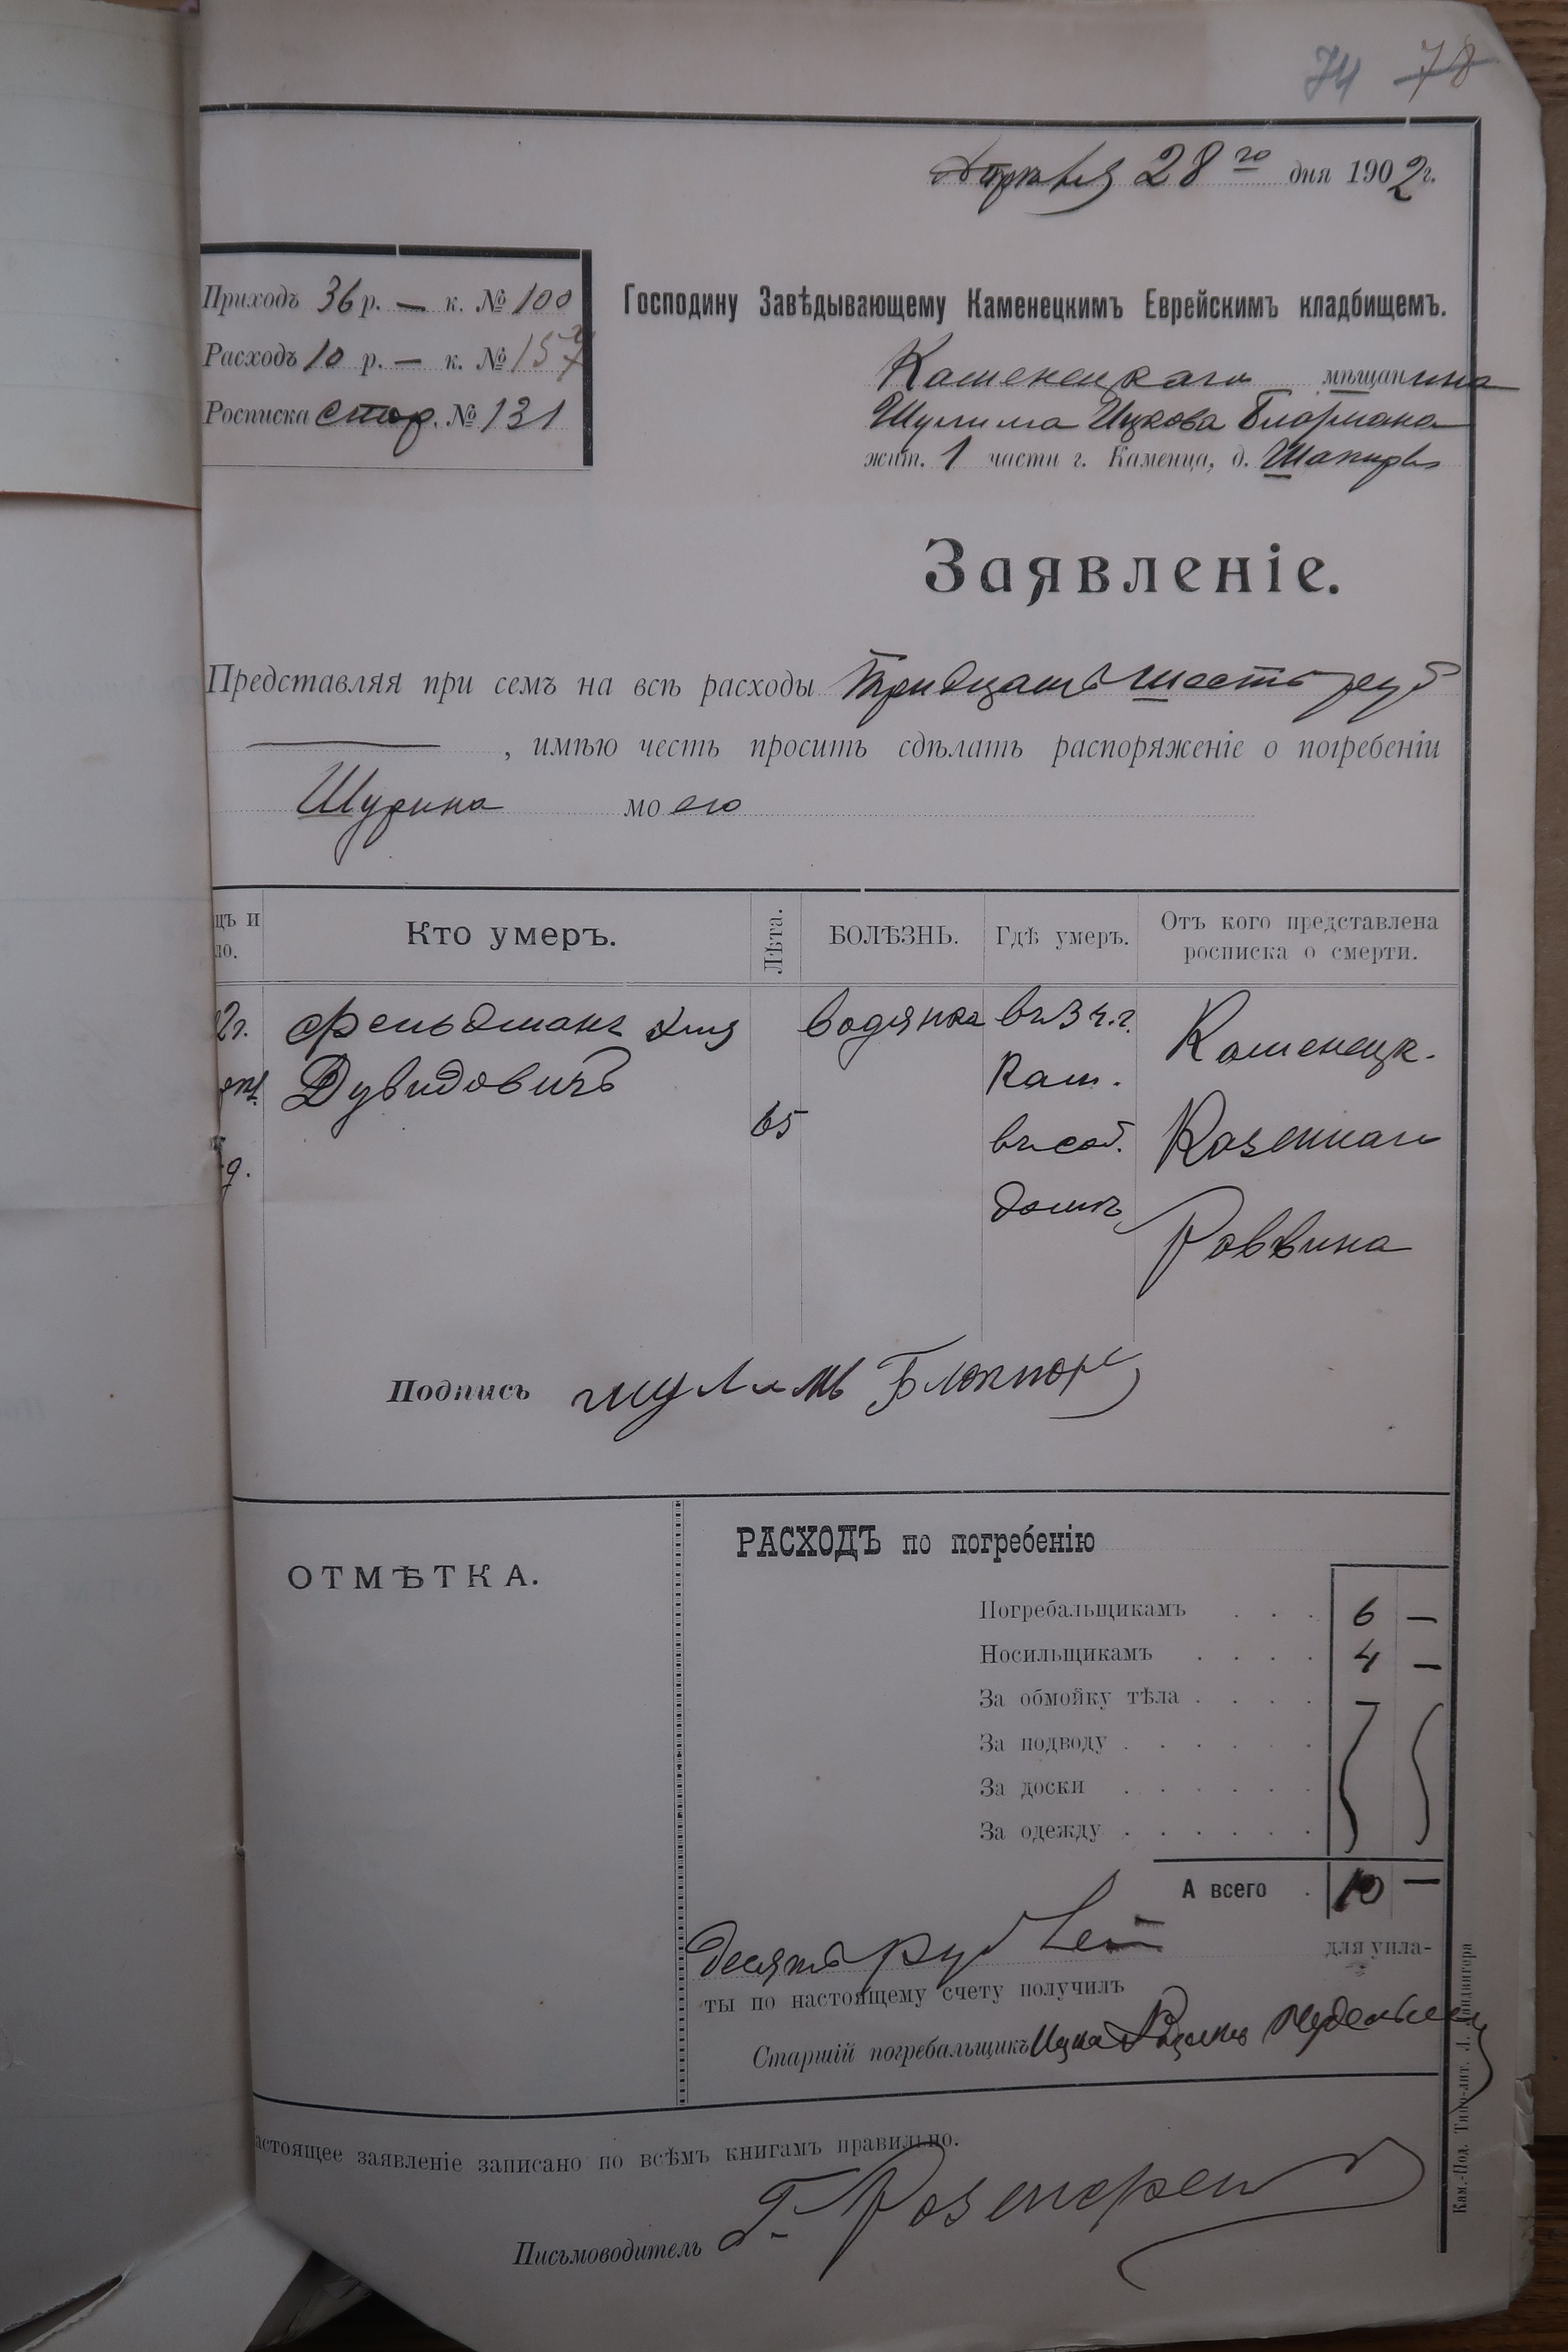 74 78
Апрѣля 28 го дня 1902 г.
Приходъ 36 р. — к. № 100
Расходъ 10 р. — к. № 157
Росписка стор. № 131
Господину Завѣдывающему Каменецкимъ Еврейскимъ кладбищемъ.
Каменецкаго мѣщанина
Шулима Ицкова
жит. 1 части г. Каменца, д. Шапиры
Заявленіе.
Представляя при семъ на всѣ расходы Тридцать шесть руб
, имѣю честь просить сдѣлать распоряженіе о погребеніи
Шурина моего
цъ и
ло.
Кто умеръ.
Лѣта.
БОЛѢЗНЬ.
Гдѣ умеръ.
Отъ кого представлена
росписка о смерти.
2г. Фельдманъ водянка въ 3 ч. г. Каменецк.
Дувидовичъ Кам.
65 въ соб. Казеннаго
домѣ Раввина
Подпись шулимъ
ОТМѢТКА.
РАСХОДЪ по погребенію
Погребальщикамъ . . . 6 —
Носильщикамъ . . . . 4 —
За обмойку тѣла . . . .
За подводу . . . . . .
За доски . . . . . .
За одежду . . . . . .
А всего . 10 —
Десять рублей для упла-
ты по настоящему счету получилъ
Старшій погребальщикъ
астоящее заявленіе записано по всѣмъ книгамъ правильно.
Письмоводитель
Кам.-Под. Типо-лит. Л. Ландвигера